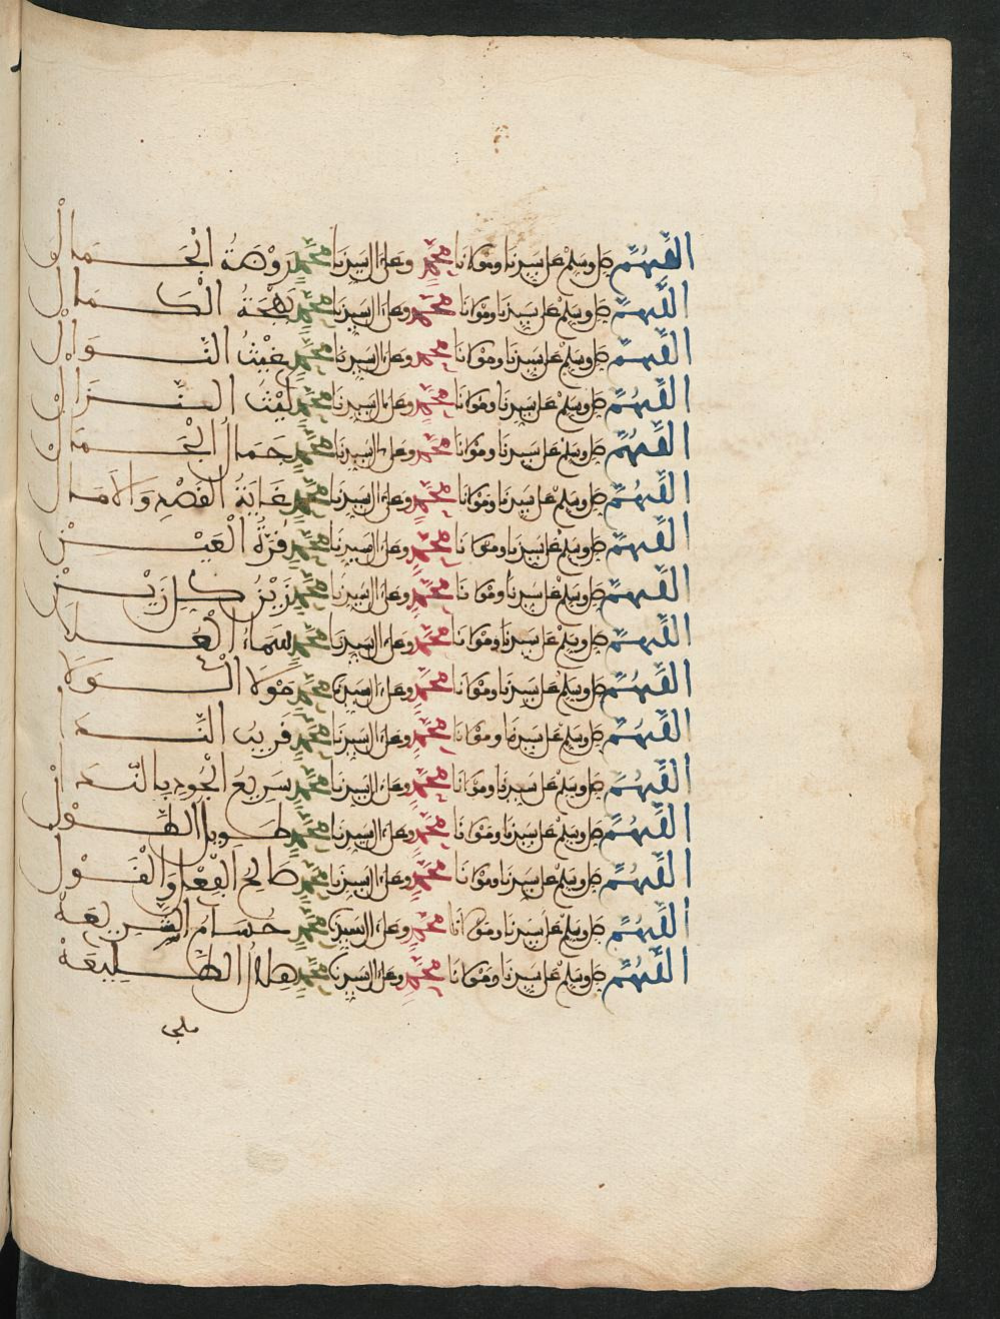 اللهم صل وسلم على سيدنا ومولانا محمد وعلى ال سيدنا محمد روضة الجمال
اللهم صل وسلم على سيدنا ومولانا محمد وعلى ال سيدنا محمد بهجة الكمال
اللهم صل وسلم على سيدنا ومولانا محمد وعلى ال سيدنا محمد غيث النوال
اللهم صل وسلم على سيدنا ومولانا محمد وعلى ال سيدنا محمد ليث النزال
اللهم صل وسلم على سيدنا ومولانا محمد وعلى ال سيدنا محمد جمال الجمال
اللهم صل وسلم على سيدنا ومولانا محمد وعلى ال سيدنا محمد غاية القصد والامال
اللهم صل وسلم على سيدنا ومولانا محمد وعلى ال سيدنا محمد قرة العين
اللهم صل وسلم على سيدنا ومولانا محمد وعلى ال سيدنا محمد زين كل زين
اللهم صل وسلم على سيدنا ومولانا محمد وعلى ال سيدنا محمد سماء العلا
اللهم صل وسلم على سيدنا ومولانا محمد وعلى ال سيدنا محمد مولا الولا
اللهم صل وسلم على سيدنا ومولانا محمد وعلى ال سيدنا محمد قريب الندا
اللهم صل وسلم على سيدنا ومولانا محمد وعلى ال سيدنا محمد سريع الجود بالندا
اللهم صل وسلم على سيدنا ومولانا محمد وعلى ال سيدنا محمد طويل الطول
اللهم صل وسلم على سيدنا ومولانا محمد وعلى ال سيدنا محمد صالح الفعل والقول
اللهم صل وسلم على سيدنا ومولانا محمد وعلى ال سيدنا محمد حسام الشريعة
اللهم صل وسلم على سيدنا ومولانا محمد وعلى ال سيدنا محمد هلال الطليعة